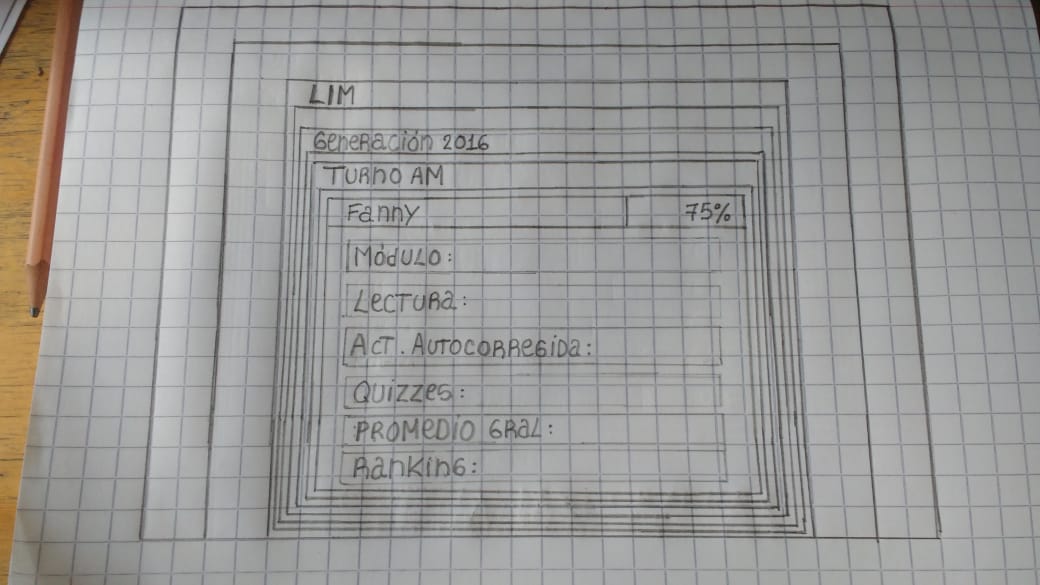 LIM
Generación 2016
Turno AM
Fanny 75%
Módulo:
Lectura:
Act. Autocorregida:
Quizzes:
Promedio Gral:
Ranking: